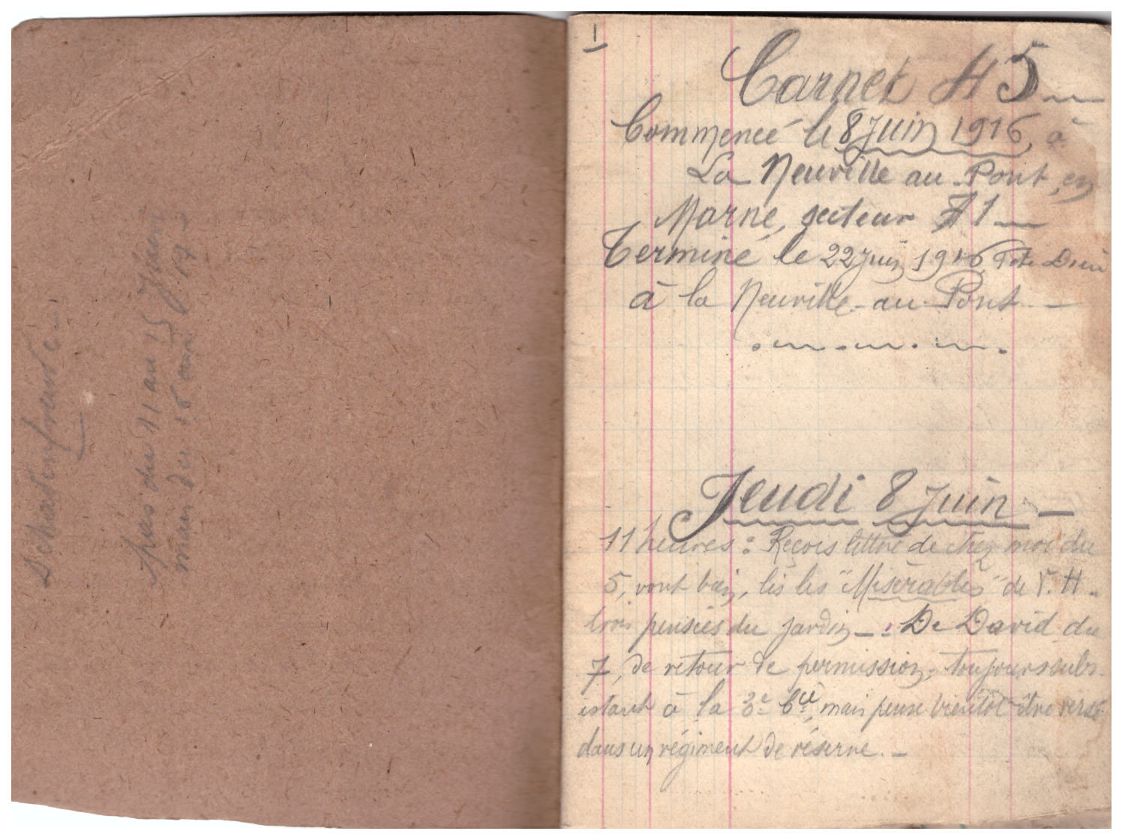 Dchatenfreuse
Pris du 11 au 15 Juin
mien de 16 au 19 -
1
Carnet 45
Commencé le 8 Juin 1916, à
La Neuville au Pont, en
Marne, secteur 71
Terminé le 22 Juin 1916, Fête Dieu
à la Neuville-au-Pont -
Jeudi 8 Juin -
11 heures : Reçois lettre de chez moi du
5, vont bien, lis les "Misérables" de V. H.
trois pensées du jardin - : De David du
7, de retour de permission, toujours subs-
istant à la 3e Cie, mais pense bientôt être versé
dans un régiment de réserve. -